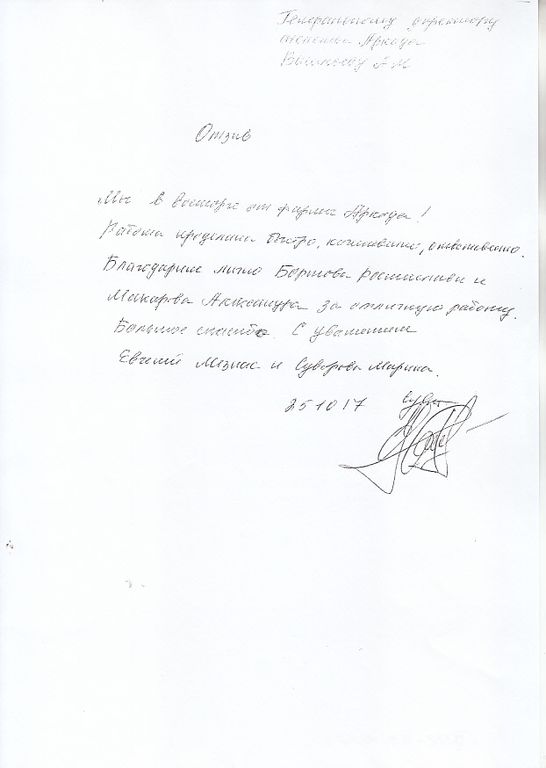 Генеральному директору
Аркада
А М
Отзыв
Мы в восторге от фирмы Аркада!
Работа проделана быстро, качественно, ответственно.
Благодарим лично Бортова Ростислава и
Макарова Александра за отличную работу.
Большое спасибо. С уважением
Евгений и Суворова Марина.
25 10 17